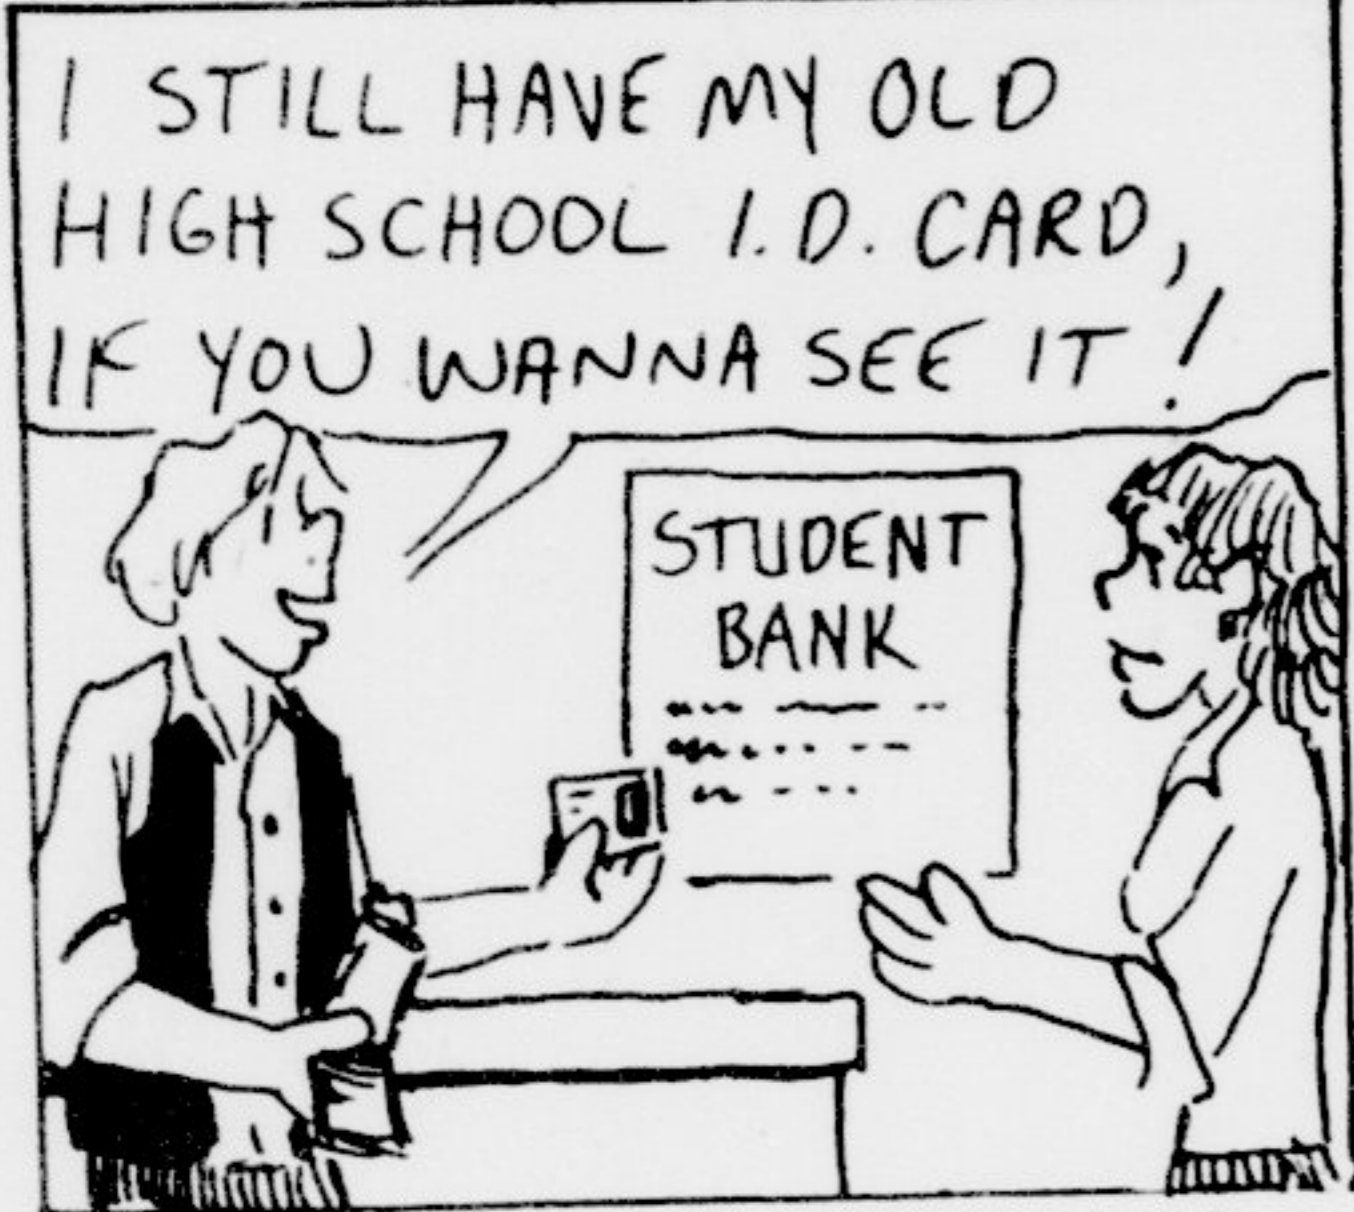 I STILL HAVE MY OLD
HIGH SCHOOL I.D. CARD,
IF YOU WANNA SEE IT!
STUDENT
BANK